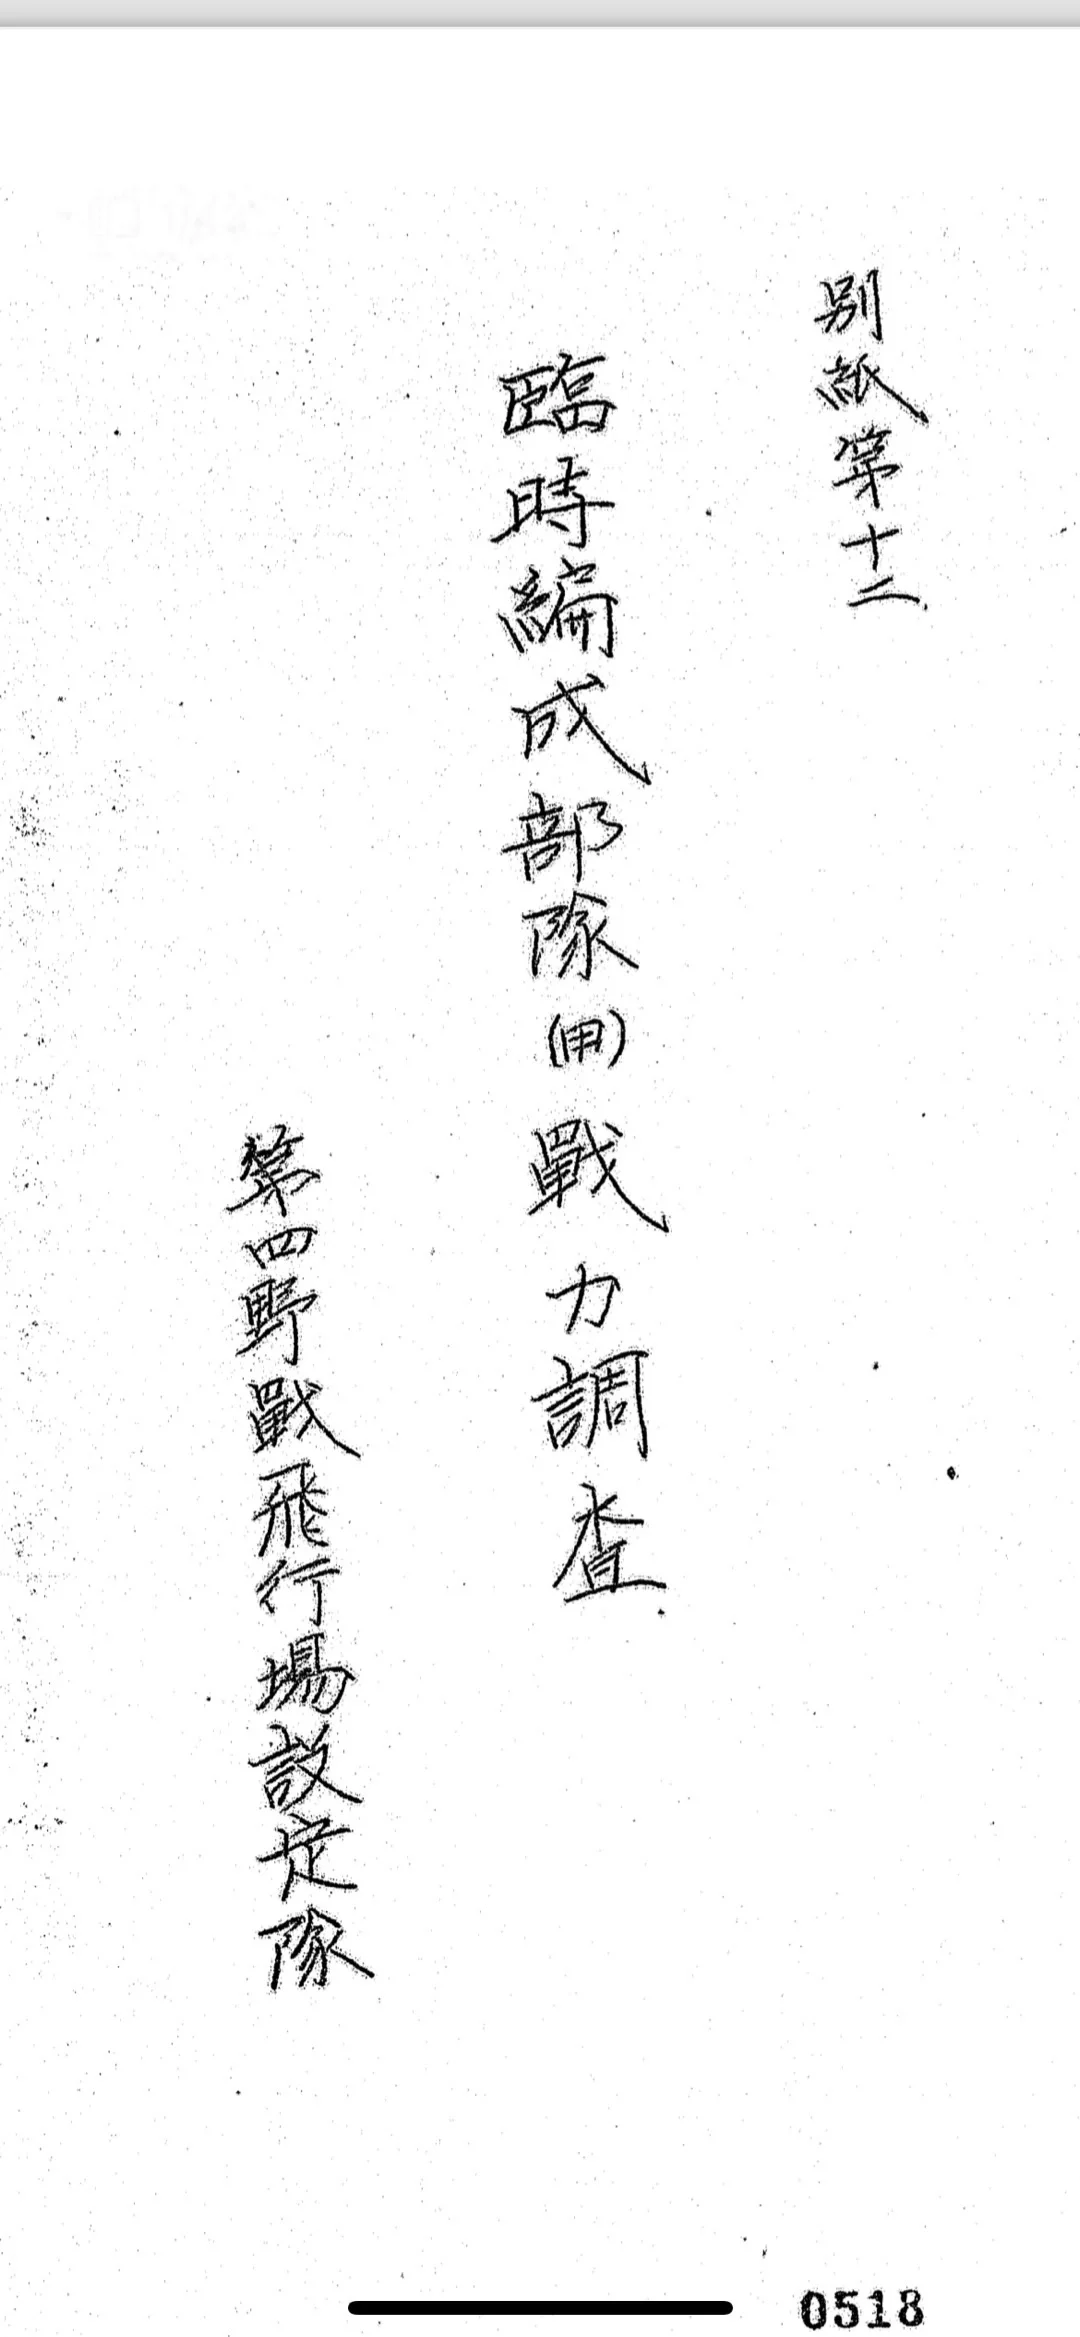 別紙第十二
臨時編成部隊(甲)戰力調査
第四野戰飛行場設定隊
0518